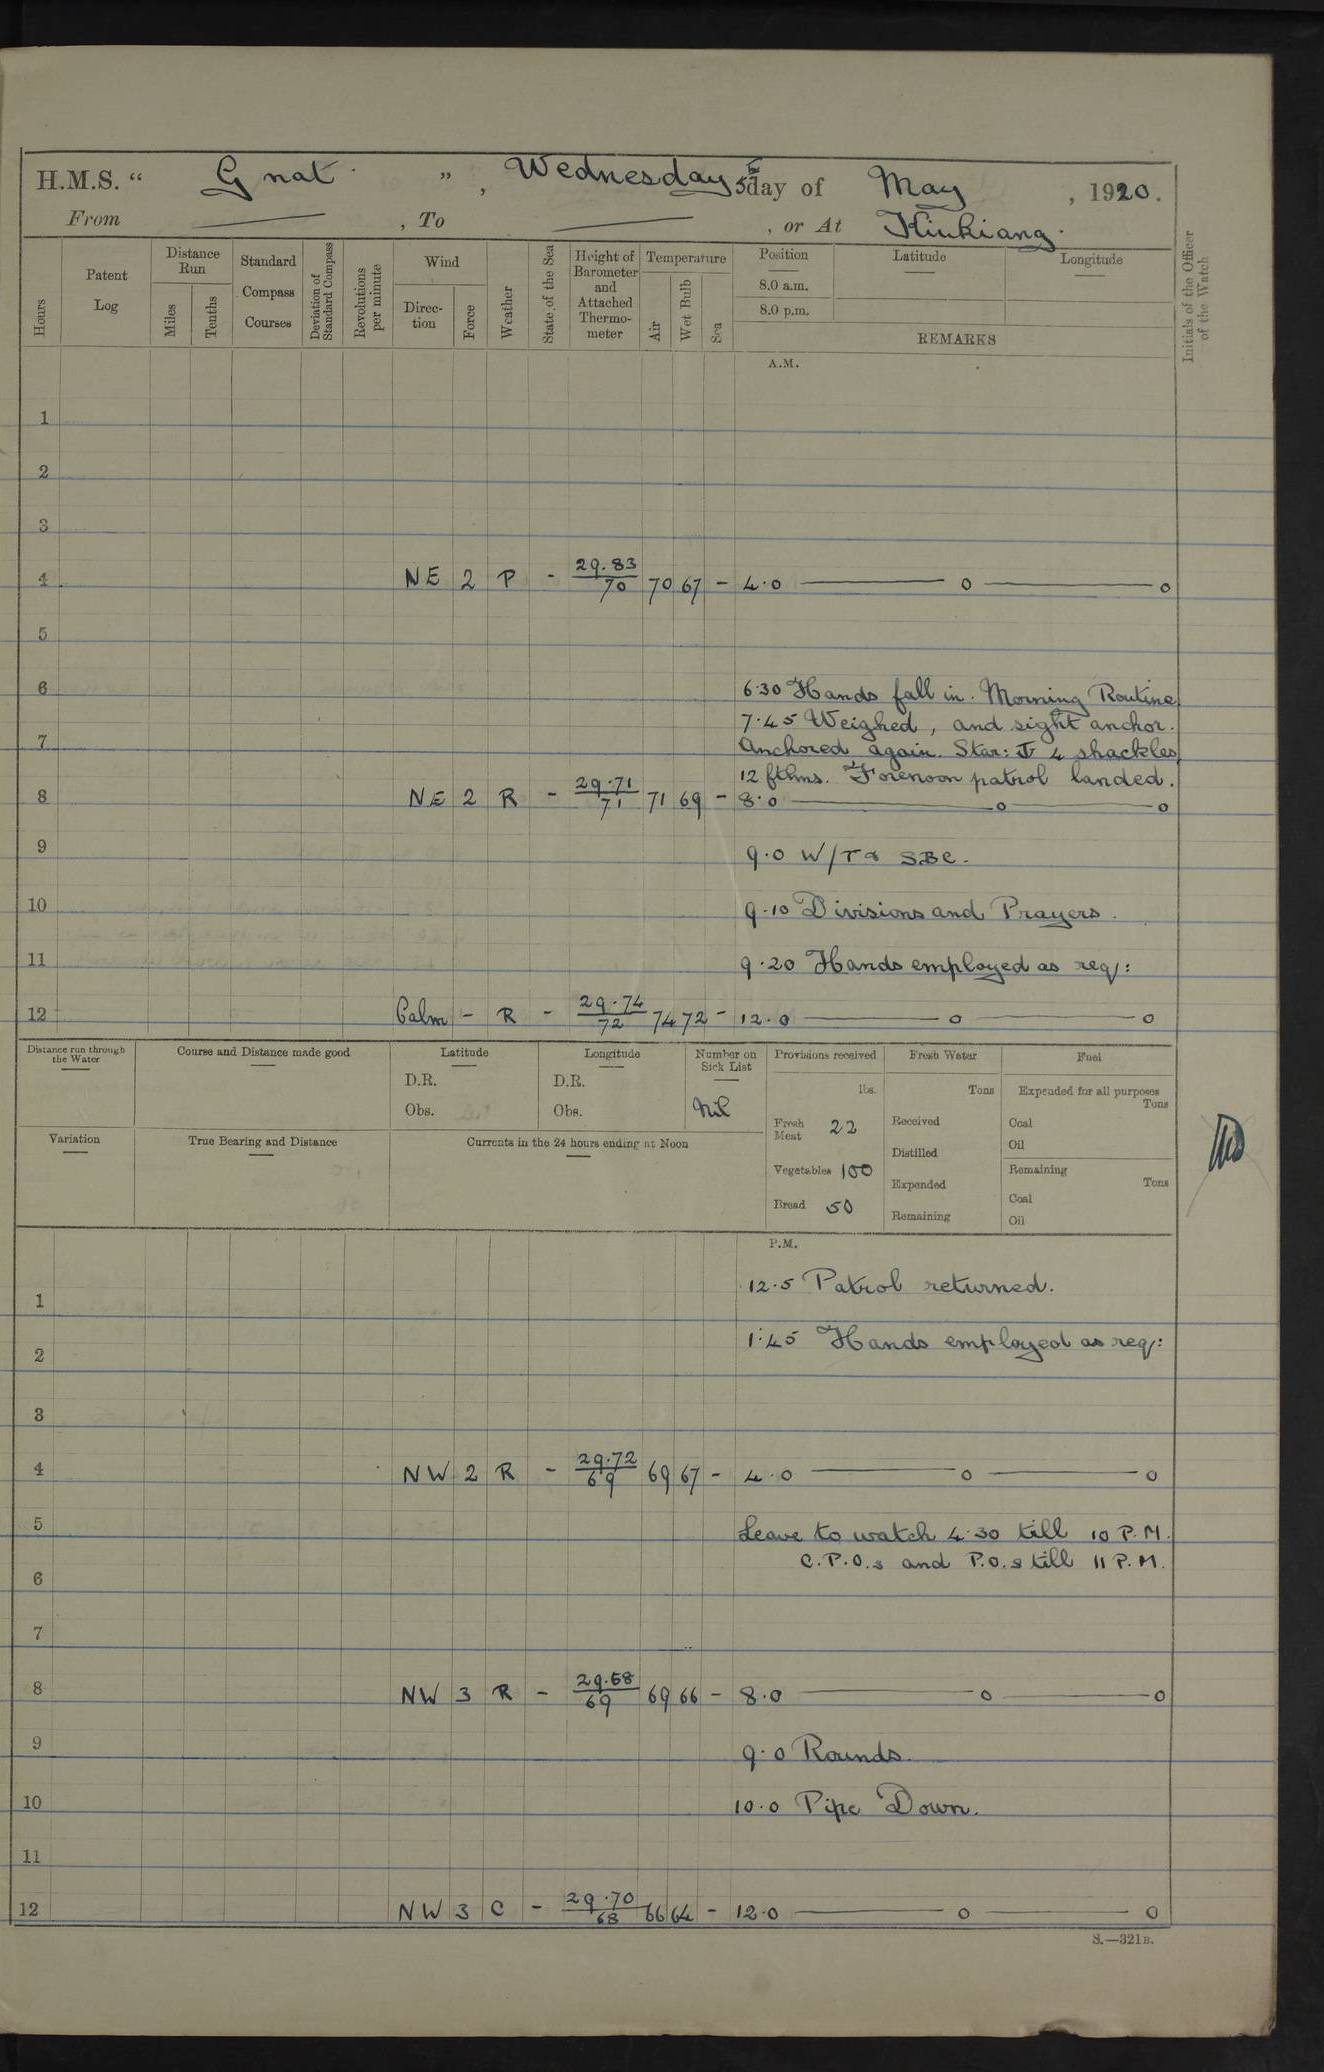 H.M.S. “ Gnat ” , Wednesday 5th day of May , 1920.
From —— , To —— , or At Kiukiang.
Hours
Patent Log
Distance Run
Miles
Tenths
Standard Compass Courses
Deviation of Standard Compass
Revolutions per minute
Wind
Direction
Force
Weather
State of the Sea
Height of Barometer and Attached Thermometer
Temperature
Air
Wet Bulb
Sea
Position
8.0 a.m.
8.0 p.m.
Latitude
Longitude
REMARKS
Initials of the Officer of the Watch
A.M.
1
2
3
4 NE 2 P - 29.83/70 70 67 - 4.0 —— o —— o
5
6
6.30 Hands fall in. Morning Routine
7.45 Weighed, and sight anchor.
7
Anchored again. Star: 4 shackles
12 fthms. Forenoon patrol landed.
8 NE 2 R - 29.71/71 71 69 - 8.0 —— o —— o
9 9.0 W/T & SBC.
10 9.10 Divisions and Prayers.
11 9.20 Hands employed as req:
12 Calm - R - 29.74/72 74 72 - 12.0 —— o —— o
Distance run through the Water
Course and Distance made good
Latitude
D.R.
Obs.
Longitude
D.R.
Obs.
Number on Sick List
Nil
Provisions received
lbs.
Fresh Meat 22
Vegetables 100
Bread 50
Fresh Water
Tons
Received
Distilled
Expended
Remaining
Fuel
Expended for all purposes
Tons
Coal
Oil
Remaining
Tons
Coal
Oil
Variation
True Bearing and Distance
Currents in the 24 hours ending at Noon
P.M.
12.5 Patrol returned.
1
1.45 Hands employed as req:
2
3
4 NW 2 R - 29.72/69 69 67 - 4.0 —— o —— o
5 Leave to watch 4.30 till 10 P.M.
C.P.O.s and P.O.s till 11 P.M.
6
7
8 NW 3 R - 29.68/69 69 66 - 8.0 —— o —— o
9 9.0 Rounds.
10 10.0 Pipe Down.
11
12 NW 3 C - 29.70/68 66 64 - 12.0 —— o —— o
S.—321B.